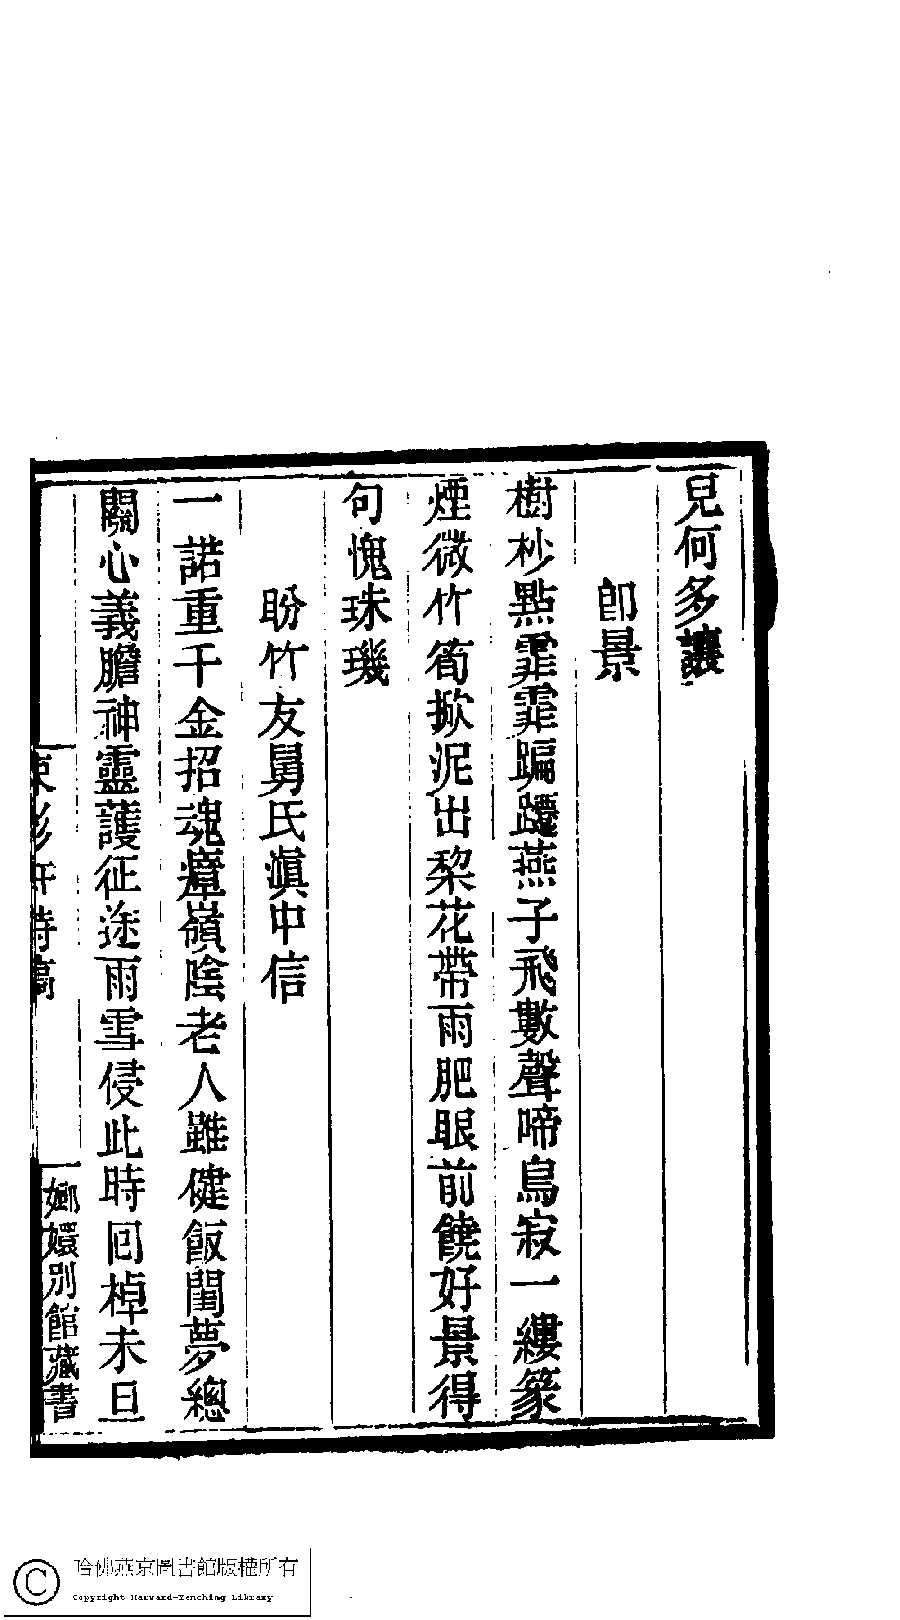 兒何多讓
卽景
樹杪點霏霏蹁躚燕子飛數聲啼鳥寂一縷篆
煙微竹筍掀泥出棃花帶雨肥眼前饒好景得
句愧珠璣
盼竹友舅氏滇中信
一諾重千金招魂瘴嶺陰老人雖健飯閨夢總
關心義膽神靈護征途雨雪侵此時囘棹未旦
嫏嬛別館藏書
哈佛燕京圖書館版權所有
Copyright Harvard-Yenching Library